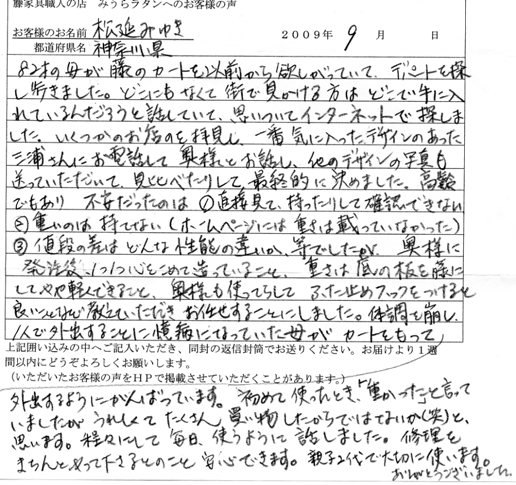 藤家具職人の店 みうらラタンへのお客様の声
お客様のお名前 松延みゆき
都道府県名 神奈川県
2009年 9月 日
82才の母が藤のカートを以前から欲しがっていて、デパートを探
し歩きました。どこにもなくて街で見かける方はどこで手に入
れているんだろうと話していて、思いついてインターネットで探しま
した。いくつかのお店のを拝見し、一番気に入ったデザインのあった
三浦さんにお電話して奥様とお話し、他のデザインの写真も
送っていただいて、見比べたりして最終的に決めました。高齢
でもあり 不安だったのは ①直接見て、持ったりして確認できない
②重いのは持てない(ホームページには重さは載っていなかった)
③値段の差はどんな性能の違いか、等でしたが、奥様に
発注後、1つ1つ心をこめて造っていること、重さは底の板を籐に
してやや軽くできること、奥様も使ってらして ふた止めフックをつけると
良いことなど教えていただき お任せすることにしました。体調を崩し、
1人で外出することに臆病になっていた母がカートをもって
上記囲い込みの中へご記入いただき、同封の返信封筒でお送りください。お届けより1週
間以内にどうぞよろしくお願いします。
(いただいたお客様の声をHPで掲載させていただくことがあります。)
外出するようにがんばっています。初めて使ったとき、「重かった」と言って
いましたが うれしくてたくさん買い物したからではないか(笑)と、
思います。様々にして毎日、使うように話しました。修理を
きちんとやって下さるとのこと 安心できます。親子2代で大切に使います。
ありがとうございました。